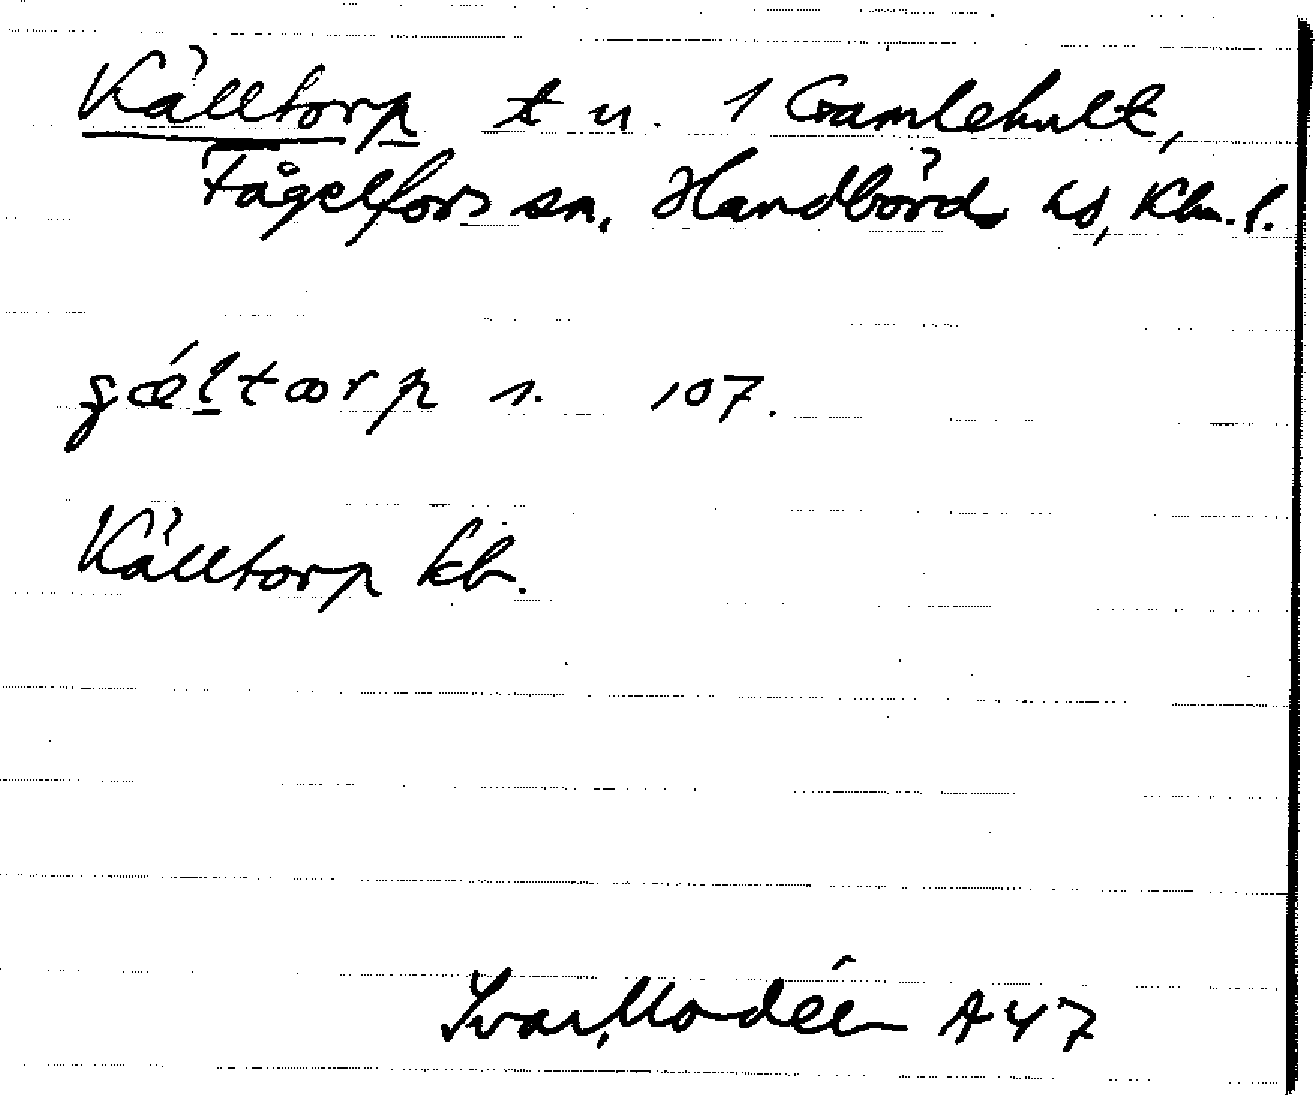 Källtorp t u. 1 Gamlehult,
Fågelfors sn, Handbörds hd, Klm. l.
gǽltorp s. 107.
Källtorp kb.
Ivar Modéer A 47